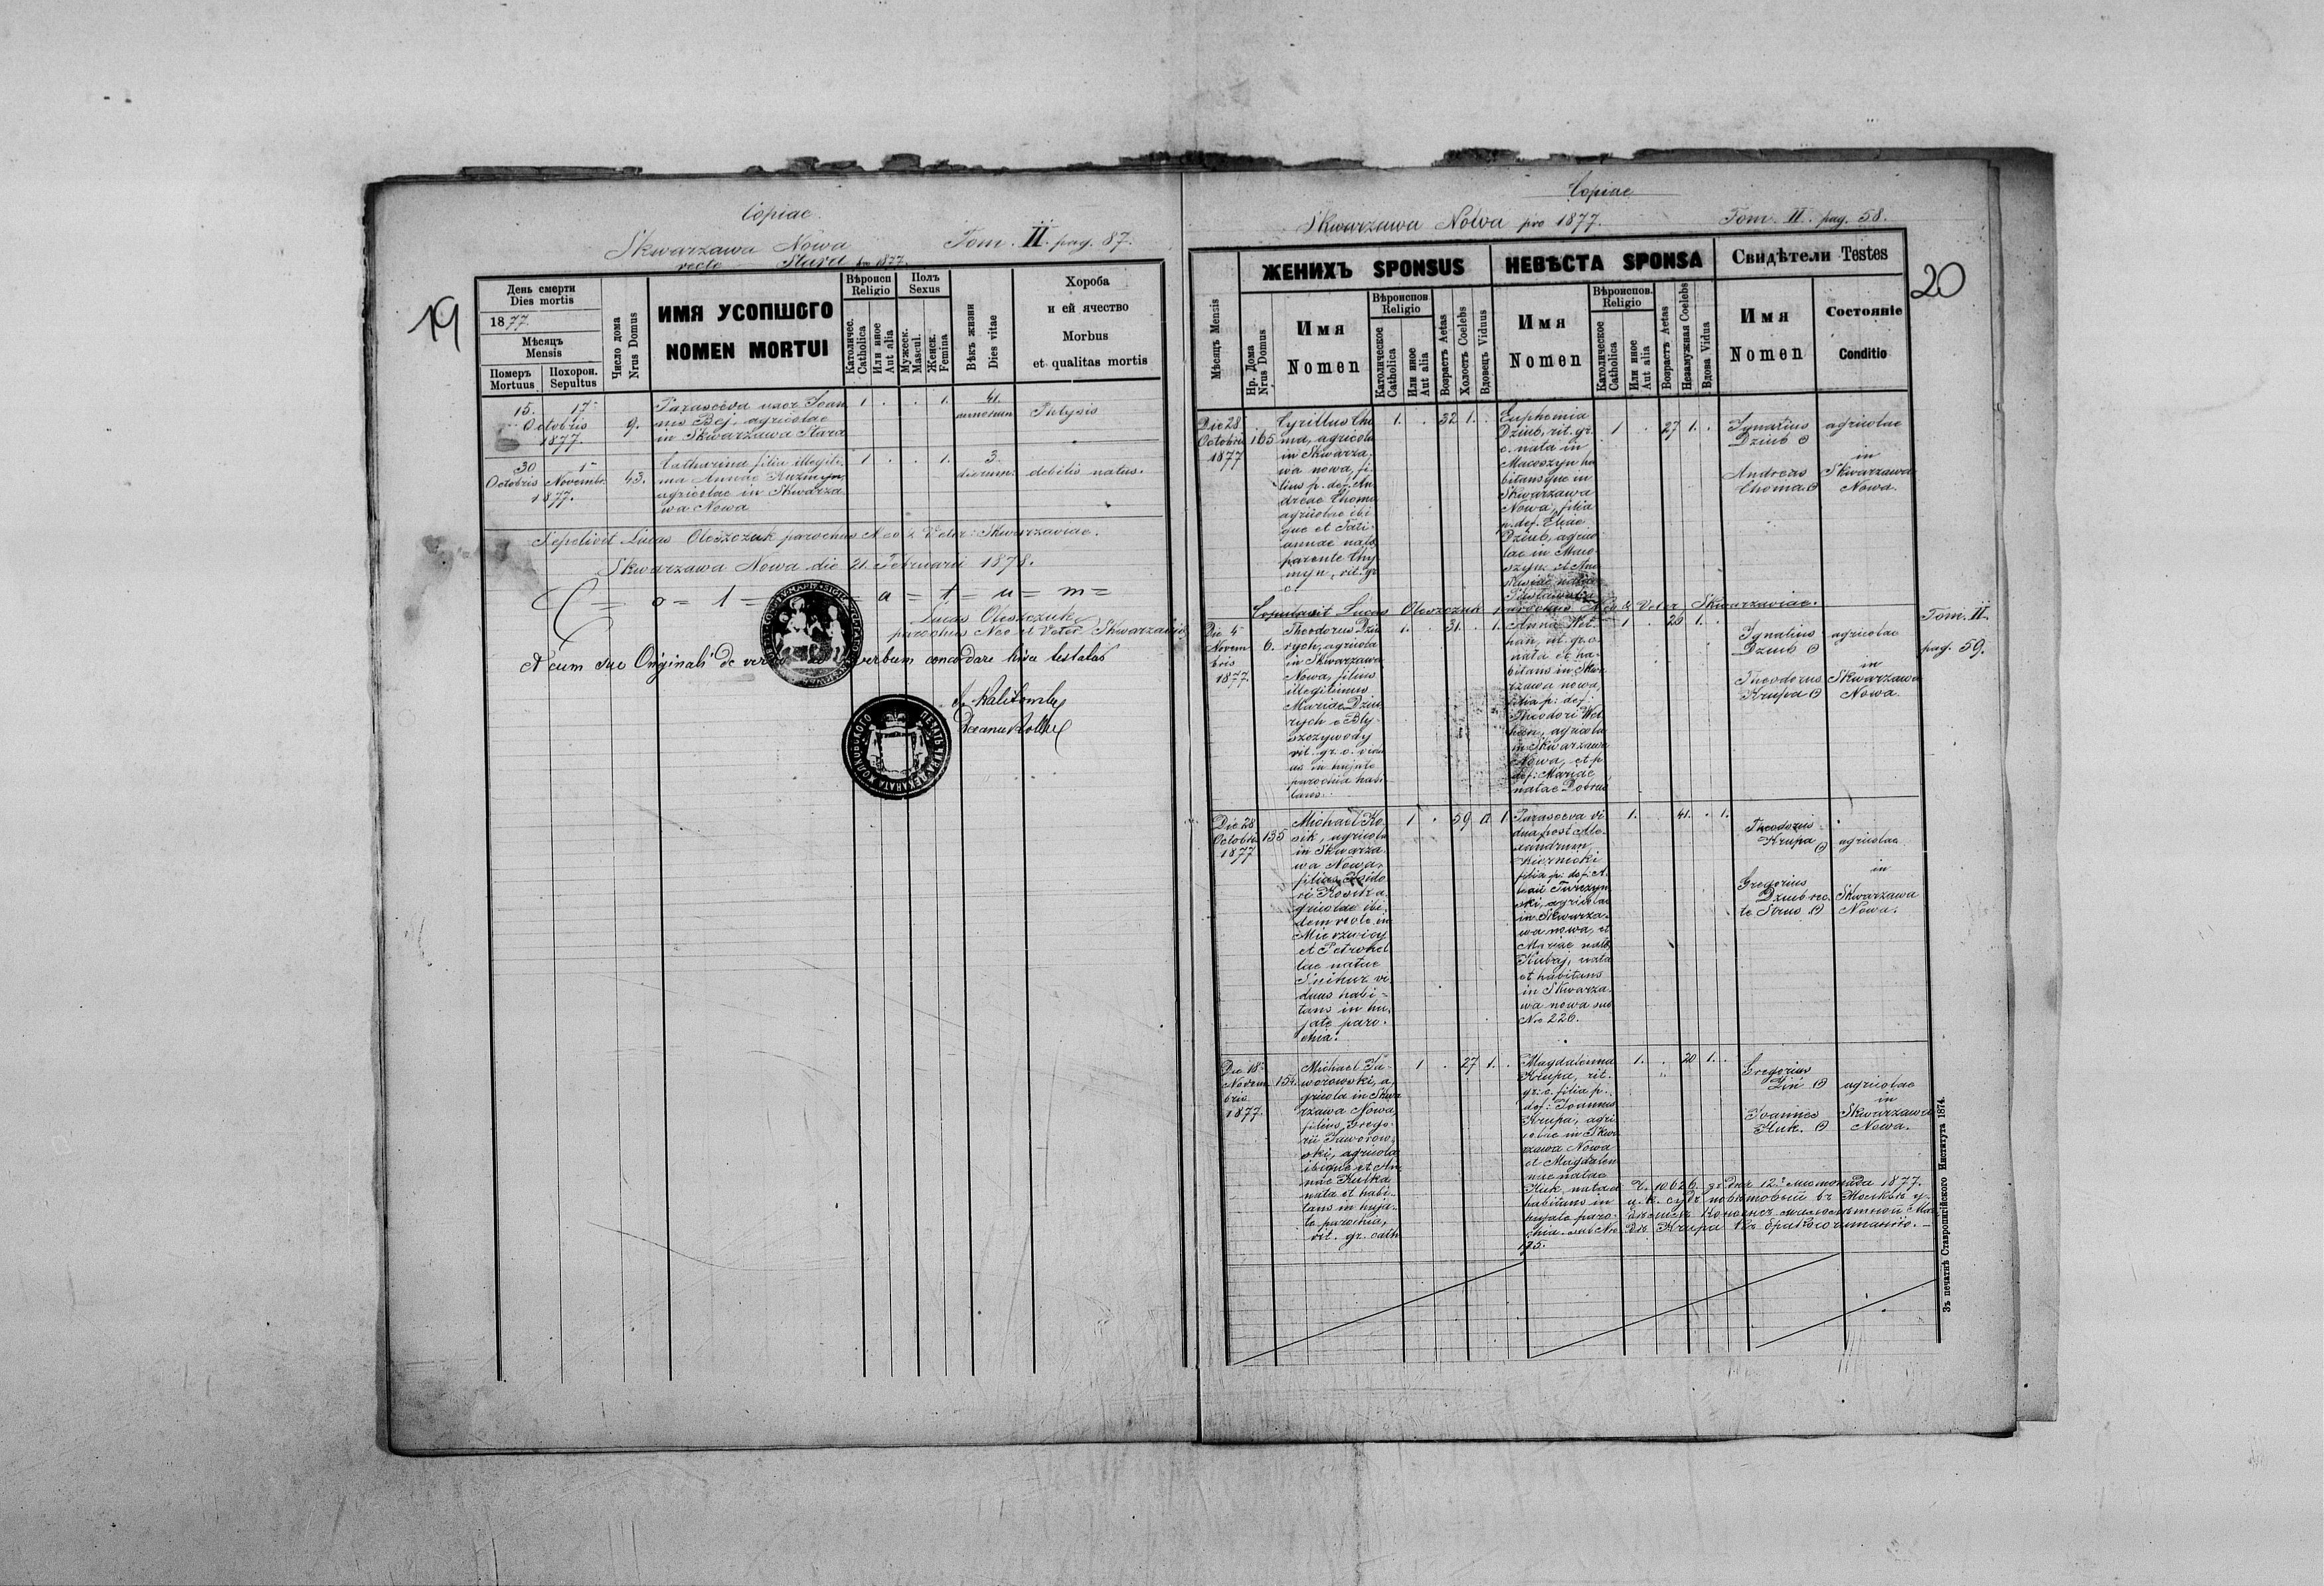 19
Copiae.
Skwarzawa Nowa Tom. II. pag. 87.
recte Stara pro 1877.
День смерти
Dies mortis
1877.
Мѣсяцъ
Mensis
Померъ
Mortuus
Похорон.
Sepultus
Число дома
Nrus Domus
ИМЯ УСОПШОГО
NOMEN MORTUI
Вѣроисп
Religio
Католичес.
Catholica
Или иное
Aut alia
Полъ
Sexus
Мужеск.
Mascul.
Женск.
Femina
Вѣкъ жизни
Dies vitae
Хороба
и ей ячество
Morbus
et qualitas mortis
15. 17
Octobris
1877.
9.
Parasceva uxor Joan
nis Bej, agricolae
in Skwarzawa Stara
1 . . 1.
41.
annorum
Phtysis
30 1
Octobris Novembr.
1877.
43.
Catharina filia illegiti-
ma Annae Kuzmyn,
agricolae in Skwarza
wa Nowa
1 . . 1.
3.
dierum.
debilis natus.
Sepelivit Lucas Oleszczuk parochus Neo & Veter: Skwarzaviae.
Skwarzawa Nowa die 21. Februarii 1878.
C = o = l = a = t = u = m =
Lucas Oleszczuk
parochus Neo et Veter Skwarzaviae
cum suo Originali de verbo verbum concordare hisce testatur
20
Copiae
Skwarzawa Nowa pro 1877. Tom. II. pag. 58.
Мѣсяцъ Mensis
ЖЕНИХЪ SPONSUS
Нр. Дома
Nrus Domus
Имя
Nomen
Вѣроиспов.
Religio
Католическое
Catholica
Или иное
Aut alia
Возрастъ Aetas
Холостъ Coelebs
Вдовецъ Viduus
НЕВѢСТА SPONSA
Имя
Nomen
Вѣроиспов.
Religio
Католическое
Catholica
Или иное
Aut alia
Возрастъ Aetas
Незамужная Coelebs
Вдова Vidua
Свидѣтели Testes
Имя
Nomen
Состоянiе
Conditio
Die 28
Octobris
1877
165
Cyrillus Cho
ma, agricola
in Skwarza
wa nowa, fi-
lius p. def. An
dreae Choma
agricolae ibi
que et Tati-
annae nata
parente Chy
myn, rit. gr
c.
1. . 32 1. .
Euphemia
Dziub, rit. gr.
c. nata in
Macoszyn ha
bitansque in
Skwarzawa
Nowa, filia
p. def. Eliae
Dziub, agrico
lae in Maco-
szyn et An
1 . 27 1. .
Ignatius
Dziub
Andreas
Choma
agricolae
in
Skwarzawa
Nowa.
Copulavit Lucas Oleszczuk parochus Neo & Veter. Skwarzaviae.
Tom. II.
pag. 59.
Die 4
Novem
bris
1877.
6.
Theodorus Dziu
rych, agricola
in Skwarzawa
Nowa, filius
illegitimus
Mariae Dziu
rych e Bly-
szczywody
rit. gr. c. vidu
us in hujate
parochia habi
tans.
1. . 31. . 1.
Anna Wet
han, rit. gr. c.
nata et ha-
bitans in Skwa
rzawa nowa,
filia p. def.
Theodori Wet
han, agricola
in Skwarzawa
Nowa, et p.
def. Mariae
natae Dobrus
1 . 26 1. .
Ignatius
Dziub
Theodorus
Krupa
agricolae
in
Skwarzawa
Nowa.
Die 28
Octobris
1877
135
Michael Ko-
sik, agricola
in Skwarza
wa Nowa,
filius Isido
ri Kosik a
gricolae ibi-
dem recte in
Mierzwicy
et Petronel
lae natae
Snihur vi
duus habi-
tans in hu-
jate paro-
chia.
1 . 59 . 1.
Parasceva vi
dua post Ale-
xandrum
Kiernicki
filia p. def. A-
Turczyn
ski, agricolae
in Skwarza-
wa nowa, et
Mariae nata
Kubaj, nata
et habitans
in Skwarza
wa nowa sub
Nro 226.
1. . 41. . 1.
Theodorus
Krupa
Gregorius
Dziub rec-
te Strus
agricolae
in
Skwarzawa
Nowa.
Die 18
Novem
bris
1877.
154.
Michael Ja-
worowski, a-
gricola in Skwa
rzawa Nowa,
filius Grego-
rii Jaworow-
ski, agricola
ibique et An
nae Kulka
nata et habi-
tans in huja-
te parochia,
rit. gr. cath
1 . 27 1. .
Magdalenna
Krupa, rit.
gr. c. filia p.
def. Joannis
Krupa, agri
colae in Skwa
rzawa Nowa
et Magdalen
nae natae
Huk nata et
habitans in
hujate paro-
chia sub Nro
175.
1. . 20 1. .
Gregorius
Joannes
Huk.
agricolae
in
Skwarzawa
Nowa.
Ч. 10626. зъ дня 12. листопада 1877.
ц. к. судъ повѣтовый въ
Krupa къ бракосочитанію.
Зъ печатнѣ Ставропигійского Института 1874.